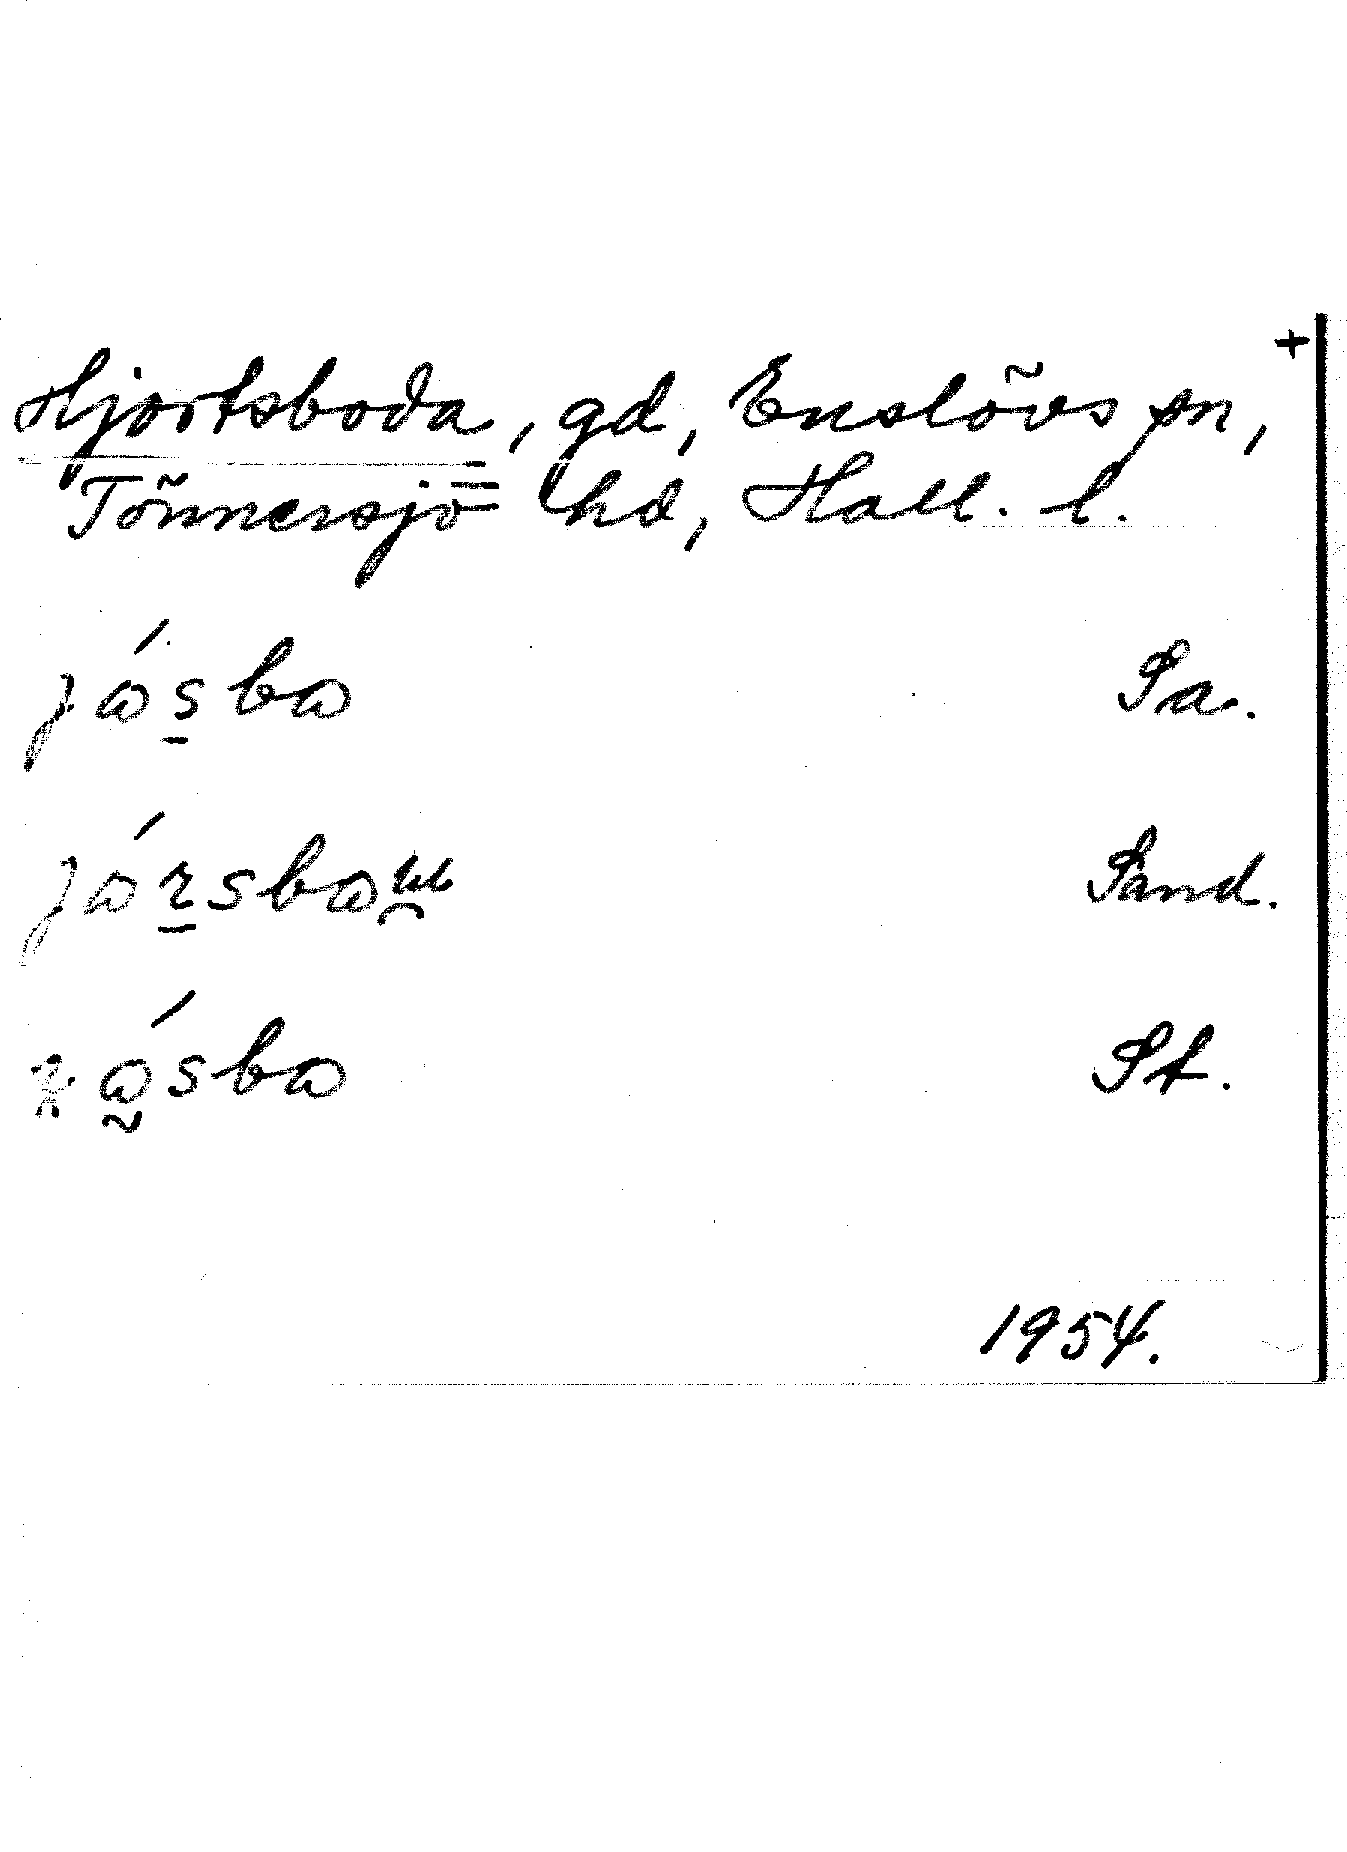 +
Hjortsboda, gd, Enslövs sn,
Tönnersjö hd, Hall. l.
jásba Sa.
Sand.
St.
1954.